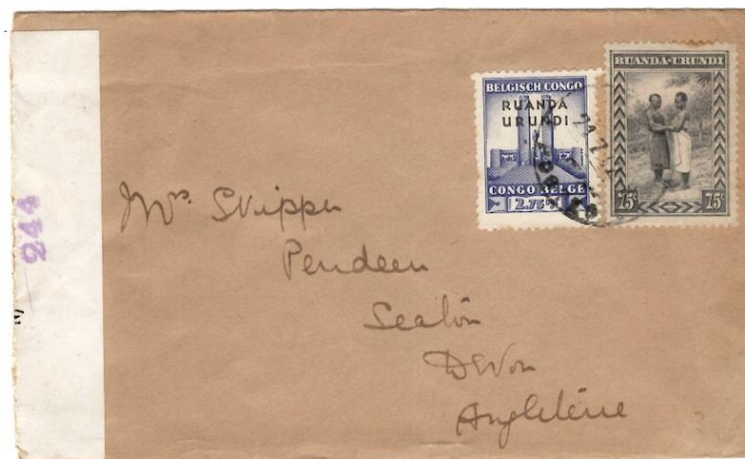 BELGISCH CONGO
RUANDA
URUNDI
CONGO BELGE
2.75
RUANDA-URUNDI
75c 75c
244
Mrs. Skipper
Pendeen
Seaton
Devon
Angleterre